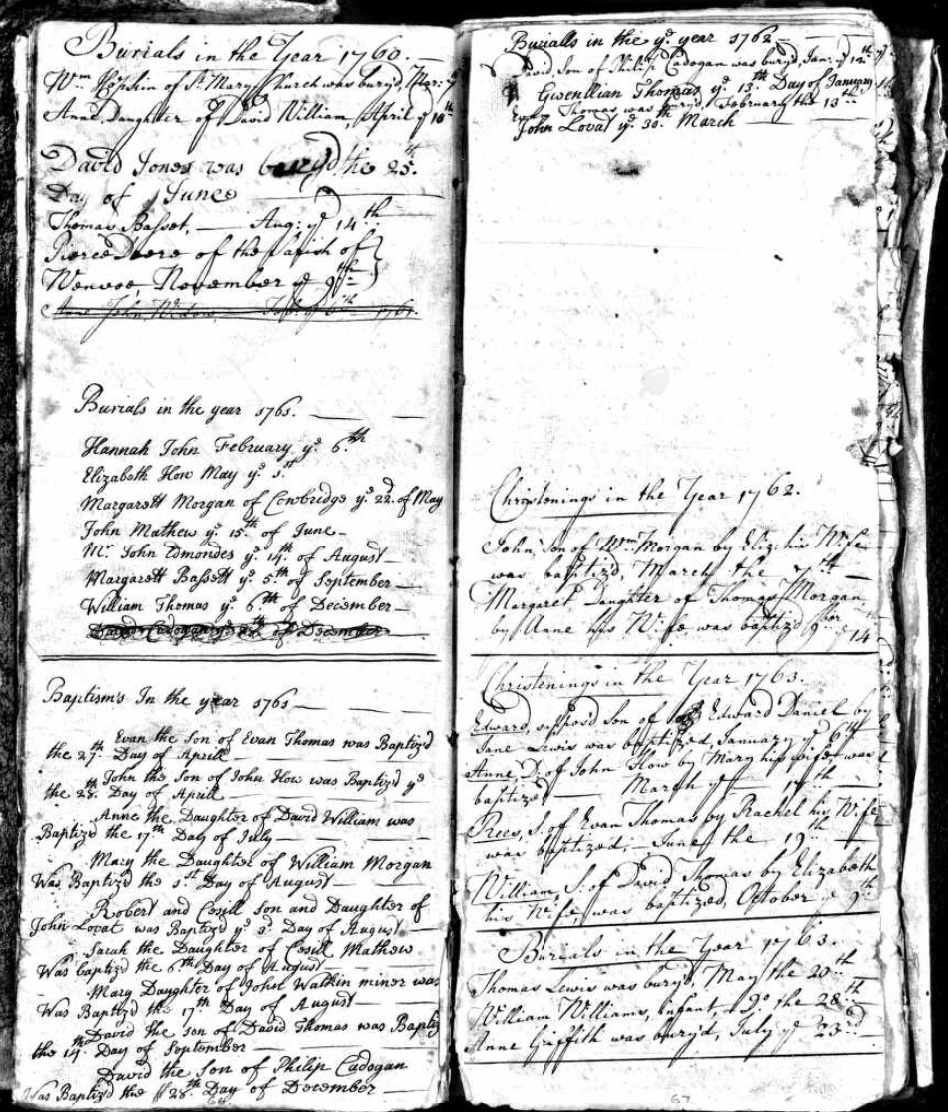 Burials in the Year 1760.
Wm Hopkin of St. Mary Church was bury'd, Mar: ye
Anne, Daughter of David William, April ye 10th
David Jones was bury'd the 25th.
Day of June
Thomas Basset, — Aug: ye 14th
Pierce Deere of the Parish of
Wenvoe, November ye 9th
Anne John Widow 1761.
Burials in the year 1761.
Hannah John February ye 6th
Elizabeth How May ye 1st
Margarett Morgan of Cowbridge ye 22d of May
John Mathew ye 15th of June
Mr. John Edmondes ye 14th of August
Margarett Bassett ye 5th of September
William Thomas ye 6th of December
Cadogan ye of December
Baptism's In the year 1761
Evan the Son of Evan Thomas was Baptiz'd
the 27th Day of Aprill
John the Son of John How was Baptiz'd ye
the 28th Day of Aprill
Anne the Daughter of David William was
Baptiz'd the 17th Day of July
Mary the Daughter of William Morgan
Was Baptiz'd the 1st Day of August
Robert and Cesill Son and Daughter of
John Lovat was Baptiz'd ye 3d Day of August
Sarah the Daughter of Cesill Mathew
Was baptiz'd the 6th Day of August
Mary Daughter of John Watkin miner was
Was Baptiz'd the 17th Day of August
David the Son of David Thomas was Baptiz
the 14th Day of September
David the Son of Philip Cadogan
Was Baptiz'd the 28th Day of December
Burialls in the ye year 1762
David, Son of Philip Cadogan was bury'd Jan: ye 12th
Gwenllian Thomas ye 13th Day of January
Thomas, was bury'd, February the 13th
John Lovat ye 30th March
Christenings in the Year 1762.
John, Son of Wm Morgan by Eliz: his Wife
was baptiz'd, March the 7th
Margaret Daughter of Thomas Morgan
by Anne his Wife was baptiz'd 9ber ye 14th
Christenings in the Year 1763.
Edward, suppos'd Son of Edward Daniel by
Jane Lewis was baptized, January ye 6th
Anne, D. of John How by Mary his wife was
baptized — March ye 17th
Rees, S. of Evan Thomas by Rachel his Wife
was baptized, — June the 19th
William, S. of David Thomas by Elizabeth
his Wife was baptized, October ye 9th
Burials in the Year 1763.
Thomas Lewis was bury'd, May the 20th
William Williams, Infant, Do the 28th
Anne Griffith was bury'd, July ye 23d
67